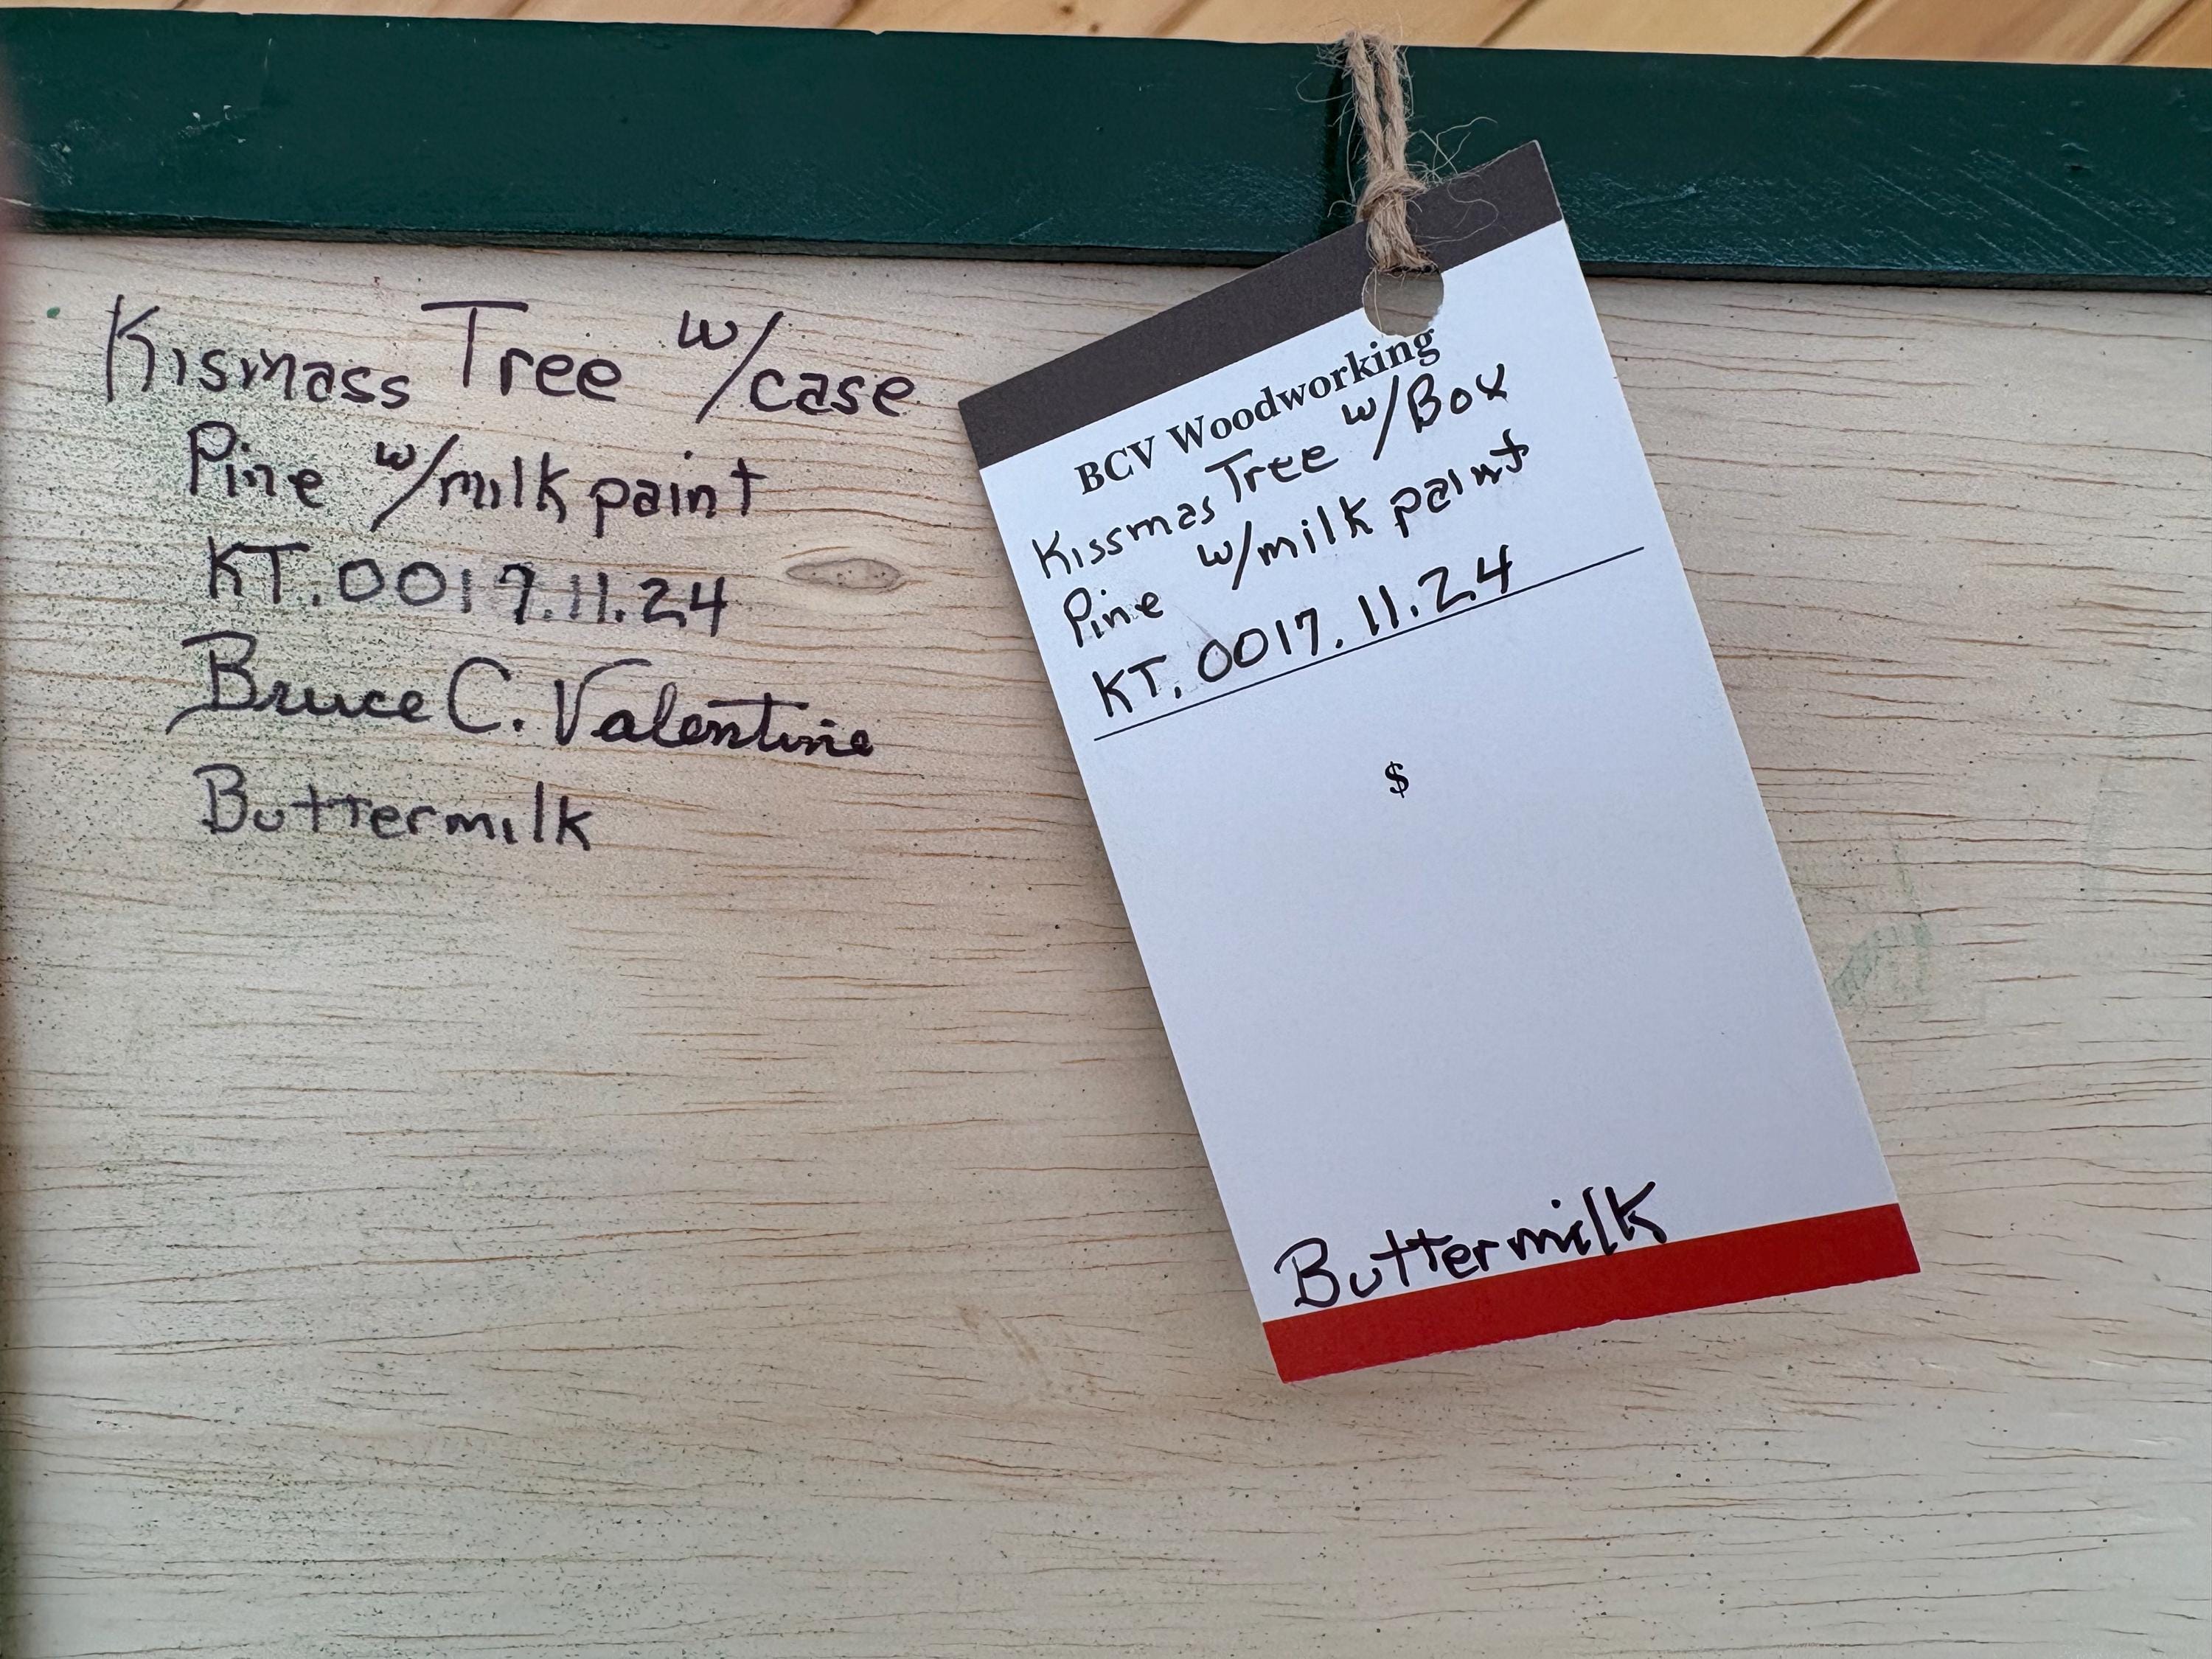 Kismass Tree w/case
Pine w/milk paint
KT.0017.11.24
Bruce C. Valentine
Buttermilk
BCV Woodworking
Kissmas Tree w/Box
Pine w/milk paint
KT.0017.11.24
$
Buttermilk